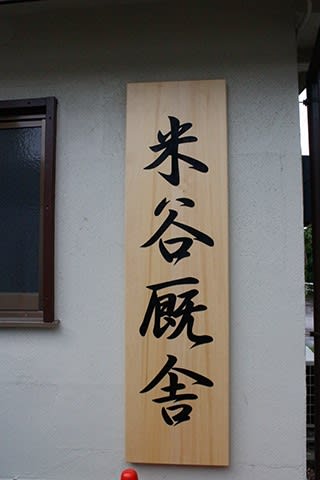 米谷厩舎